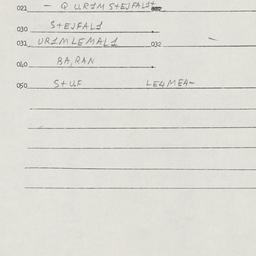 021 - Q UR1M STEJFAL11
030 STEJFAL1
031 UR1MLEMAL1 032 -
040 BA,RAN
050 STUF LE4MEA-